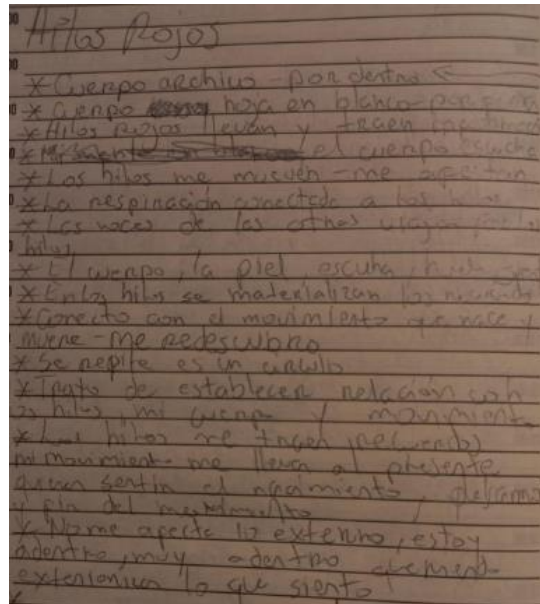 Hilos Rojos
* Cuerpo archivo - por dentro <
* Cuerpo hoja en blanco - por
* Hilos Rojos llevan y traen
* el cuerpo escucha
* Los hilos me mueven - me
* La respiración conectada a los hilos
* Las voces de las otras viajan
hilos
* El cuerpo, la piel, escucha,
* En los hilos se materializan los
* Conecto con el movimiento que nace y
muere - me redescubro
* Se repite es un circulo
* Trato de establecer relación con
los hilos, mi cuerpo y movimiento
* Los hilos me traen recuerdos
mi movimiento me lleva al presente
sentir el nacimiento,
y fin del movimiento
* No me afecta lo externo, estoy
adentro, muy adentro queriendo
lo que siento